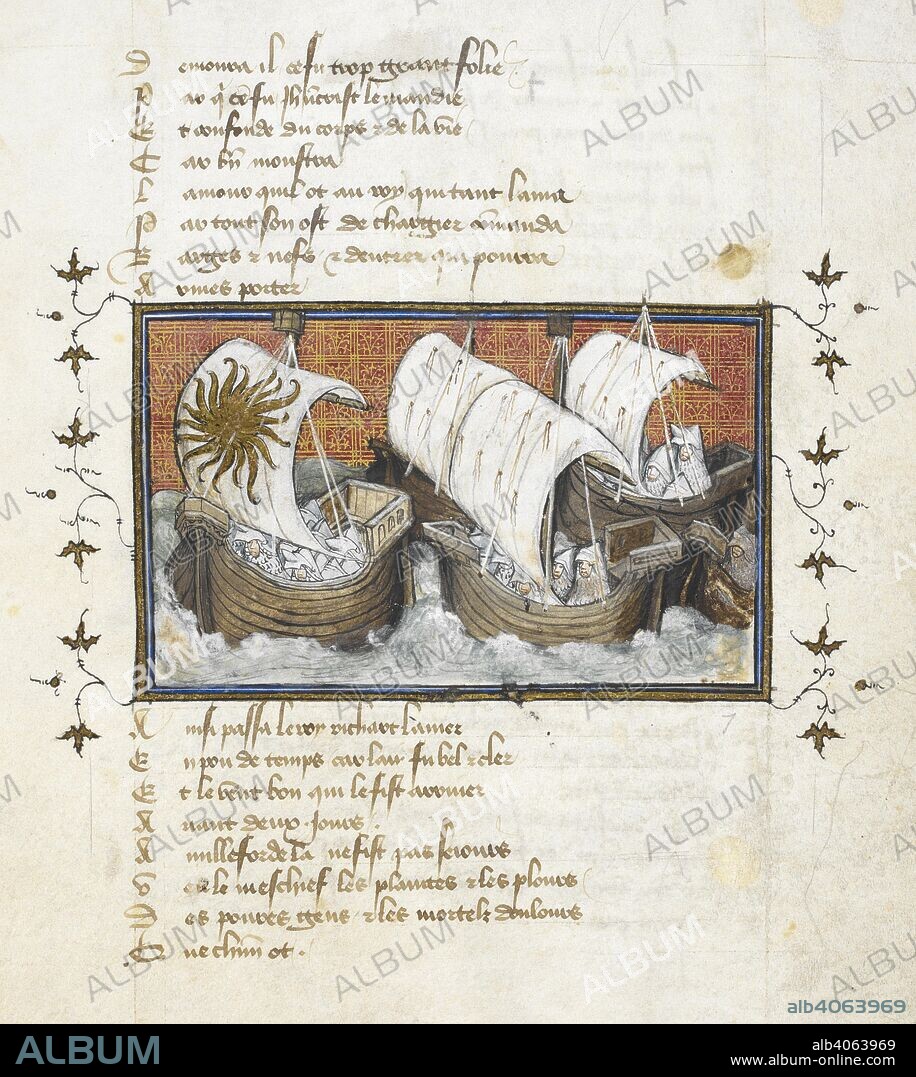 Demoura il ce fu trop grant folie
Car q̄ ce fu ihūcrist le maudie
Et confonde du corps & de la vie
Car bn̄ monstra
Lamour quil ot au roy qui tant lama
Par tout son ost de chargier cōmanda
Barges & nefs & dentrer qui pourra
Armes porter
Ainsi passa le roy richart la mer
En pou de temps car lair fu bel & cler
Et le vent bon qui le fist arriver
Avant deux jours
A milleforde la ne fist pas seiours
Veu le meschief les plaintes & les plours
Des povres gens & les mortelz doulours
Que chūn ot.
7
alb4063969
ALBUM
alb4063969
www.album-online.com